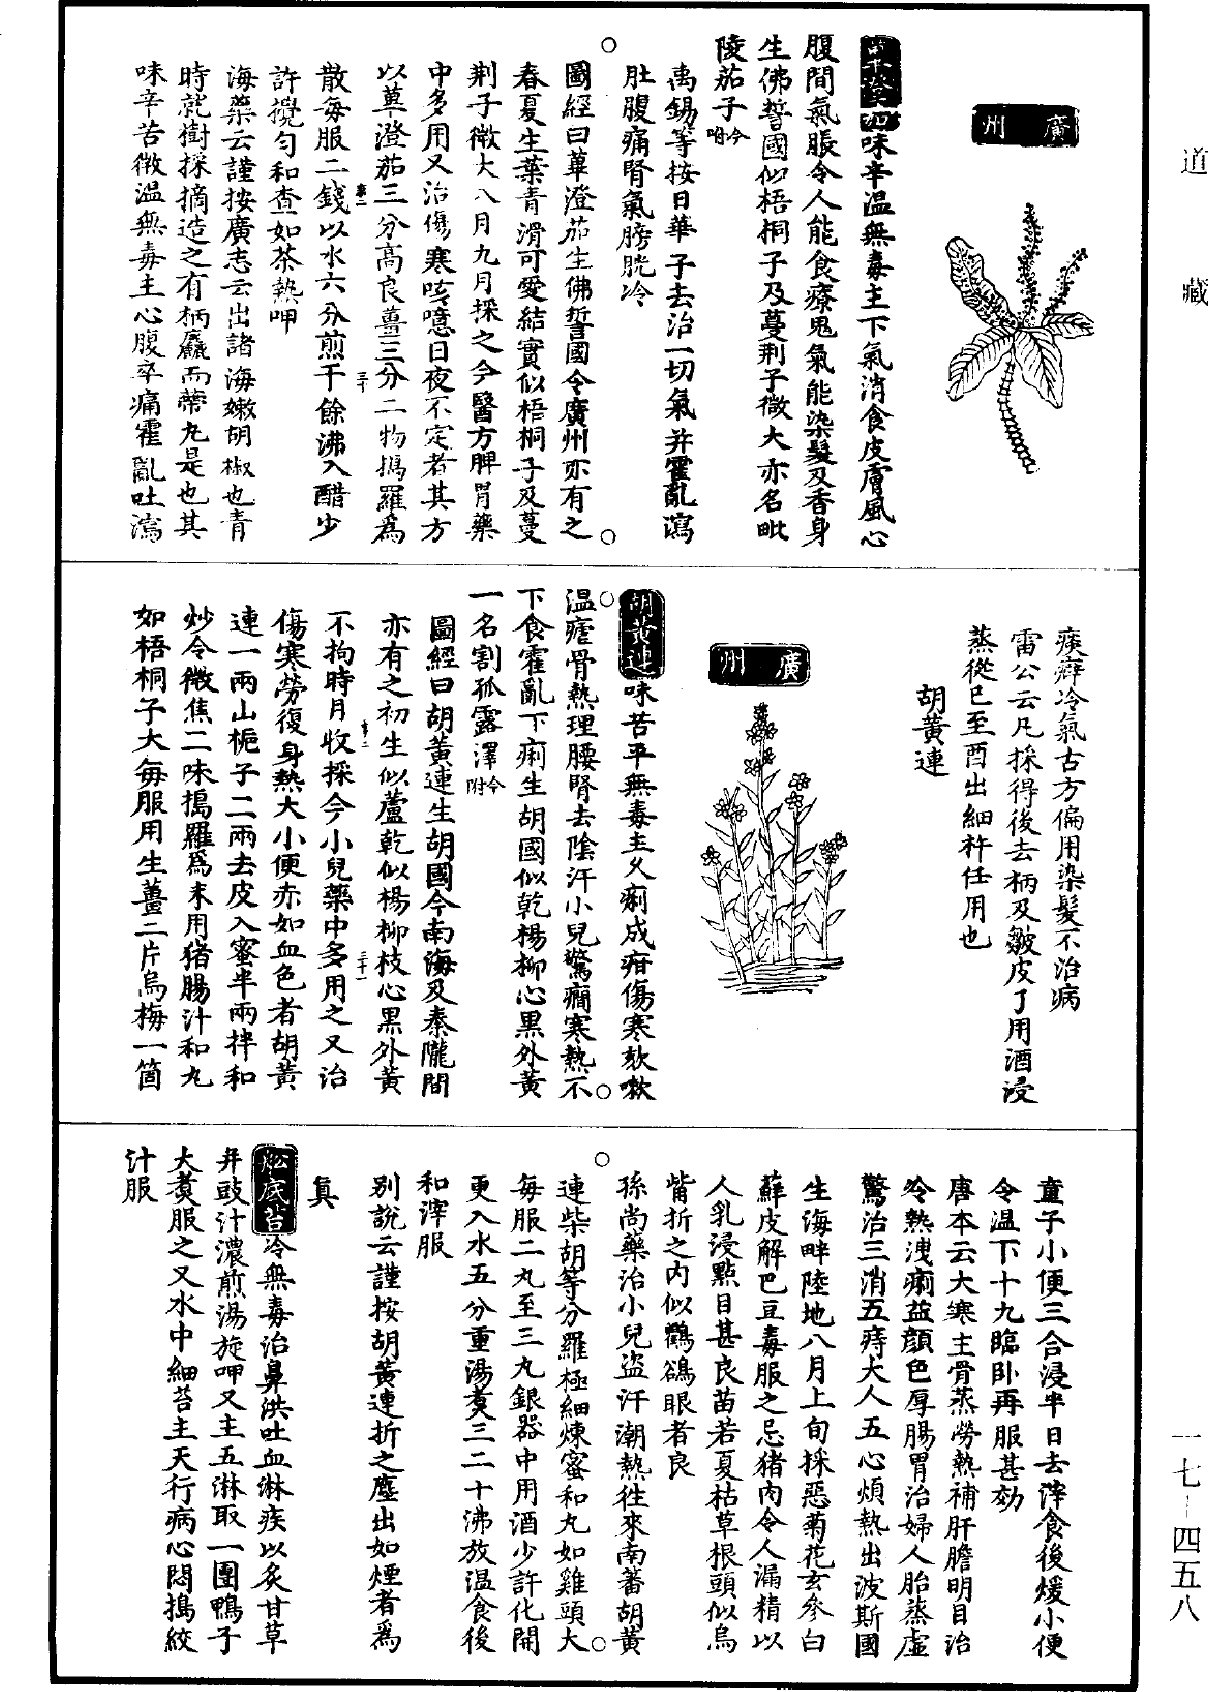 道藏
廣州
蓽澄茄味辛温無毒主下氣消食皮膚風心
腹間氣脹令人能食療鬼氣能染髮及香身
生佛誓國似梧桐子及蔓荆子微大亦名毗
陵茄子今附
禹錫等按日華子去治一切氣并霍亂瀉
肚腹痛腎氣膀胱冷
圖經曰蓽澄茄生佛誓國今廣州亦有之
春夏生葉青滑可愛結實似梧桐子及蔓
荆子微大八月九月採之今醫方脾胃藥
中多用又治傷寒咳噫日夜不定者其方
以蓽澄茄三分高良薑三分二物搗羅爲
散每服二錢以水六分煎十餘沸入醋少
許攪匀和查如茶熱呷
海藥云謹按廣志云出諸海嫩胡椒也青
時就樹採摘造之有柄麤而蔕丸是也其
味辛苦微温無毒主心腹卒痛霍亂吐瀉
痰癖冷氣古方偏用染髮不治病
雷公云凡採得後去柄及皺皮了用酒浸
蒸從巳至酉出細杵任用也
胡黄連
廣州
胡黄連味苦平無毒主久痢成疳傷寒欬嗽
温瘧骨熱理腰腎去陰汗小兒驚癇寒熱不
下食霍亂下痢生胡國似乾楊柳心黑外黄
一名割孤露澤今附
圖經曰胡黄連生胡國今南海及秦隴間
亦有之初生似蘆乾似楊柳枝心黑外黄
不拘時月收採今小兒藥中多用之又治
傷寒勞復身熱大小便赤如血色者胡黄
連一兩山梔子二兩去皮入蜜半兩拌和
炒令微焦二味搗羅爲末用猪腸汁和丸
如梧桐子大每服用生薑二片烏梅一箇
童子小便三合浸半日去滓食後煖小便
令温下十丸臨卧再服甚効
唐本云大寒主骨蒸勞熱補肝膽明目治
冷熱洩痢益顔色厚腸胃治婦人胎蒸虚
驚治三消五痔大人五心煩熱出波斯國
生海畔陸地八月上旬採惡菊花玄參白
蘚皮解巴豆毒服之忌猪肉令人漏精以
人乳浸點目甚良苗若夏枯草根頭似烏
觜折之内似鸜鵒眼者良
孫尚藥治小兒盗汗潮熱往來南蕃胡黄
連柴胡等分羅極細煉蜜和丸如雞頭大
每服二丸至三丸銀器中用酒少許化開
更入水五分重湯煑三二十沸放温食後
和滓服
别說云謹按胡黄連折之塵出如煙者爲
真
船底苔冷無毒治鼻洪吐血淋疾以炙甘草
并豉汁濃煎湯旋呷又主五淋取一團鴨子
大煑服之又水中細苔主天行病心悶搗絞
汁服
一七－四五八